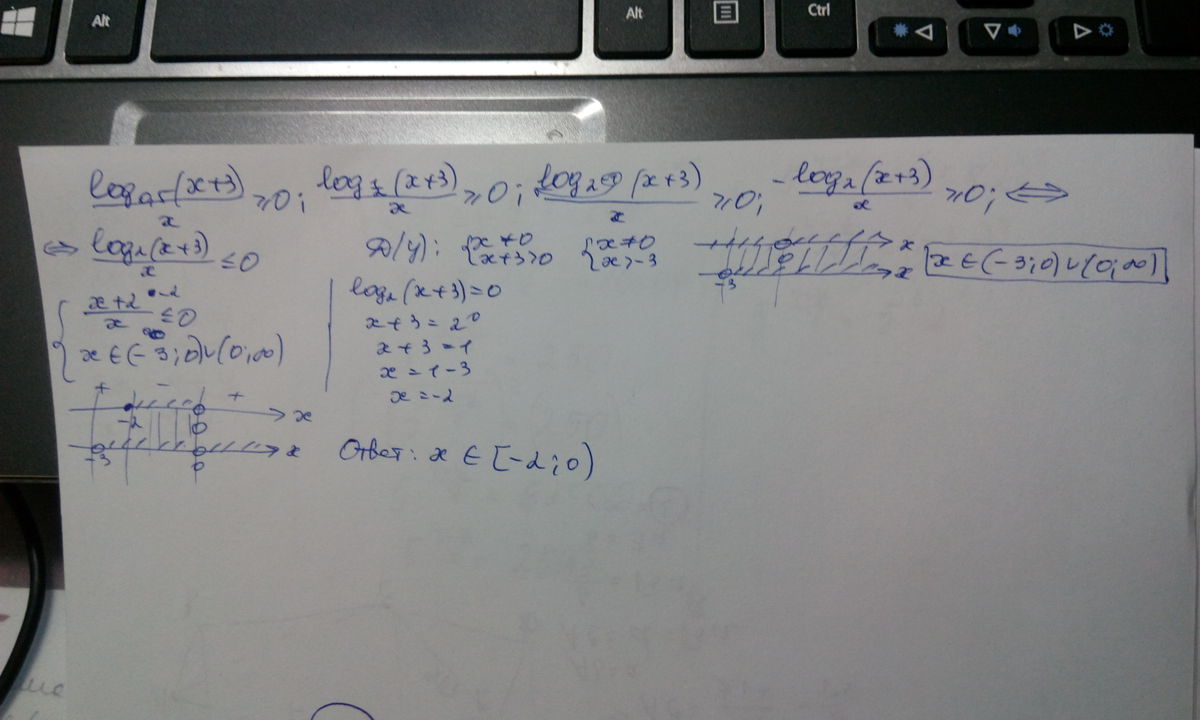 Alt
Alt
Ctrl
log₀,₅(x+3)/x ≥0; log_½(x+3)/x ≥0; log₂⁻¹(x+3)/x ≥0; -log₂(x+3)/x ≥0; ⟺
⟺ log₂(x+3)/x ≤0 D(y): {x≠0 x+3>0 {x≠0 x>-3 x∈(-3;0)∪(0;∞)
0 x
-3 0 x
{(x+2)/x ≤0
x∈(-3;0)∪(0;∞)
log₂(x+3)=0
x+3=2⁰
x+3=1
x=1-3
x=-2
+ - +
-2 0 x
-3 0 x
Ответ: x∈[-2;0)